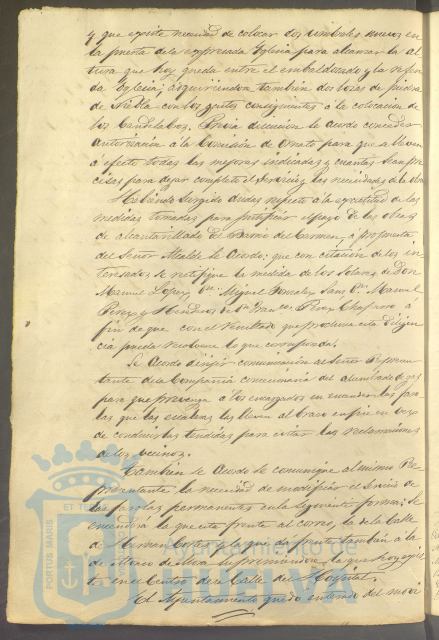 y que existe necesidad de colocar dos umbrales nuevos en
la puerta de la expresada Iglesia para alcanzar la al
tura que hoy queda entre el embaldosado y la referi
da Iglesia; adquiriendo tambien dos losas de piedra
de Niebla con los gastos consiguientes á la colocacion de
los Candelabros. Previa discusion se acordó conceder
autorizacion á la Comision de Ornato para que se lleven
á efecto todas las mejoras indicadas y cuantas sean pre
cisas para dejar completo el servicio y las necesidades de la obra
Habiendo surgido dudas respecto á la exactitud de las
medidas tomadas para justificar el pago de las obras
de alcantarillado del Barrio del Carmen, á propuesta
del Señor Alcalde se Acordó: que con citacion de los in
teresados se rectifique la medida de los Solares de Don
Manuel Lopez, Dn. Miguel Gonzalez Sanz, Dn. Manuel
Perez y Herederos de Dn. Franco. Perez Chaparro á
fin de que con el resultado que produzca esta diligen
cia pueda resolverse lo que corresponda.
Se Acordó dirigir comunicacion al Señor Represen
tante de la Compañia concesionaria del alumbrado de gas
para que prevenga á los encargados en encender las faro
las que las escaleras las lleven al brazo en vez
de conducirlas tendidas para evitar las reclamaciones
de los vecinos.
Tambien se Acordó se comunique al mismo Re
presentante la necesidad de modificar el servicio de
las farolas permanentes en la siguiente forma: Se
encenderá la que esta frente al corro, la de la Calle
de Hernan Cortes y la que da frente tambien á la
de suprimiendo la que hoy exis
te en el Centro de la Calle del Hospital.
El Ayuntamiento quedó enterado del movi
PORTUS MARIS
ET TE
Ayuntamiento de
HUELVA